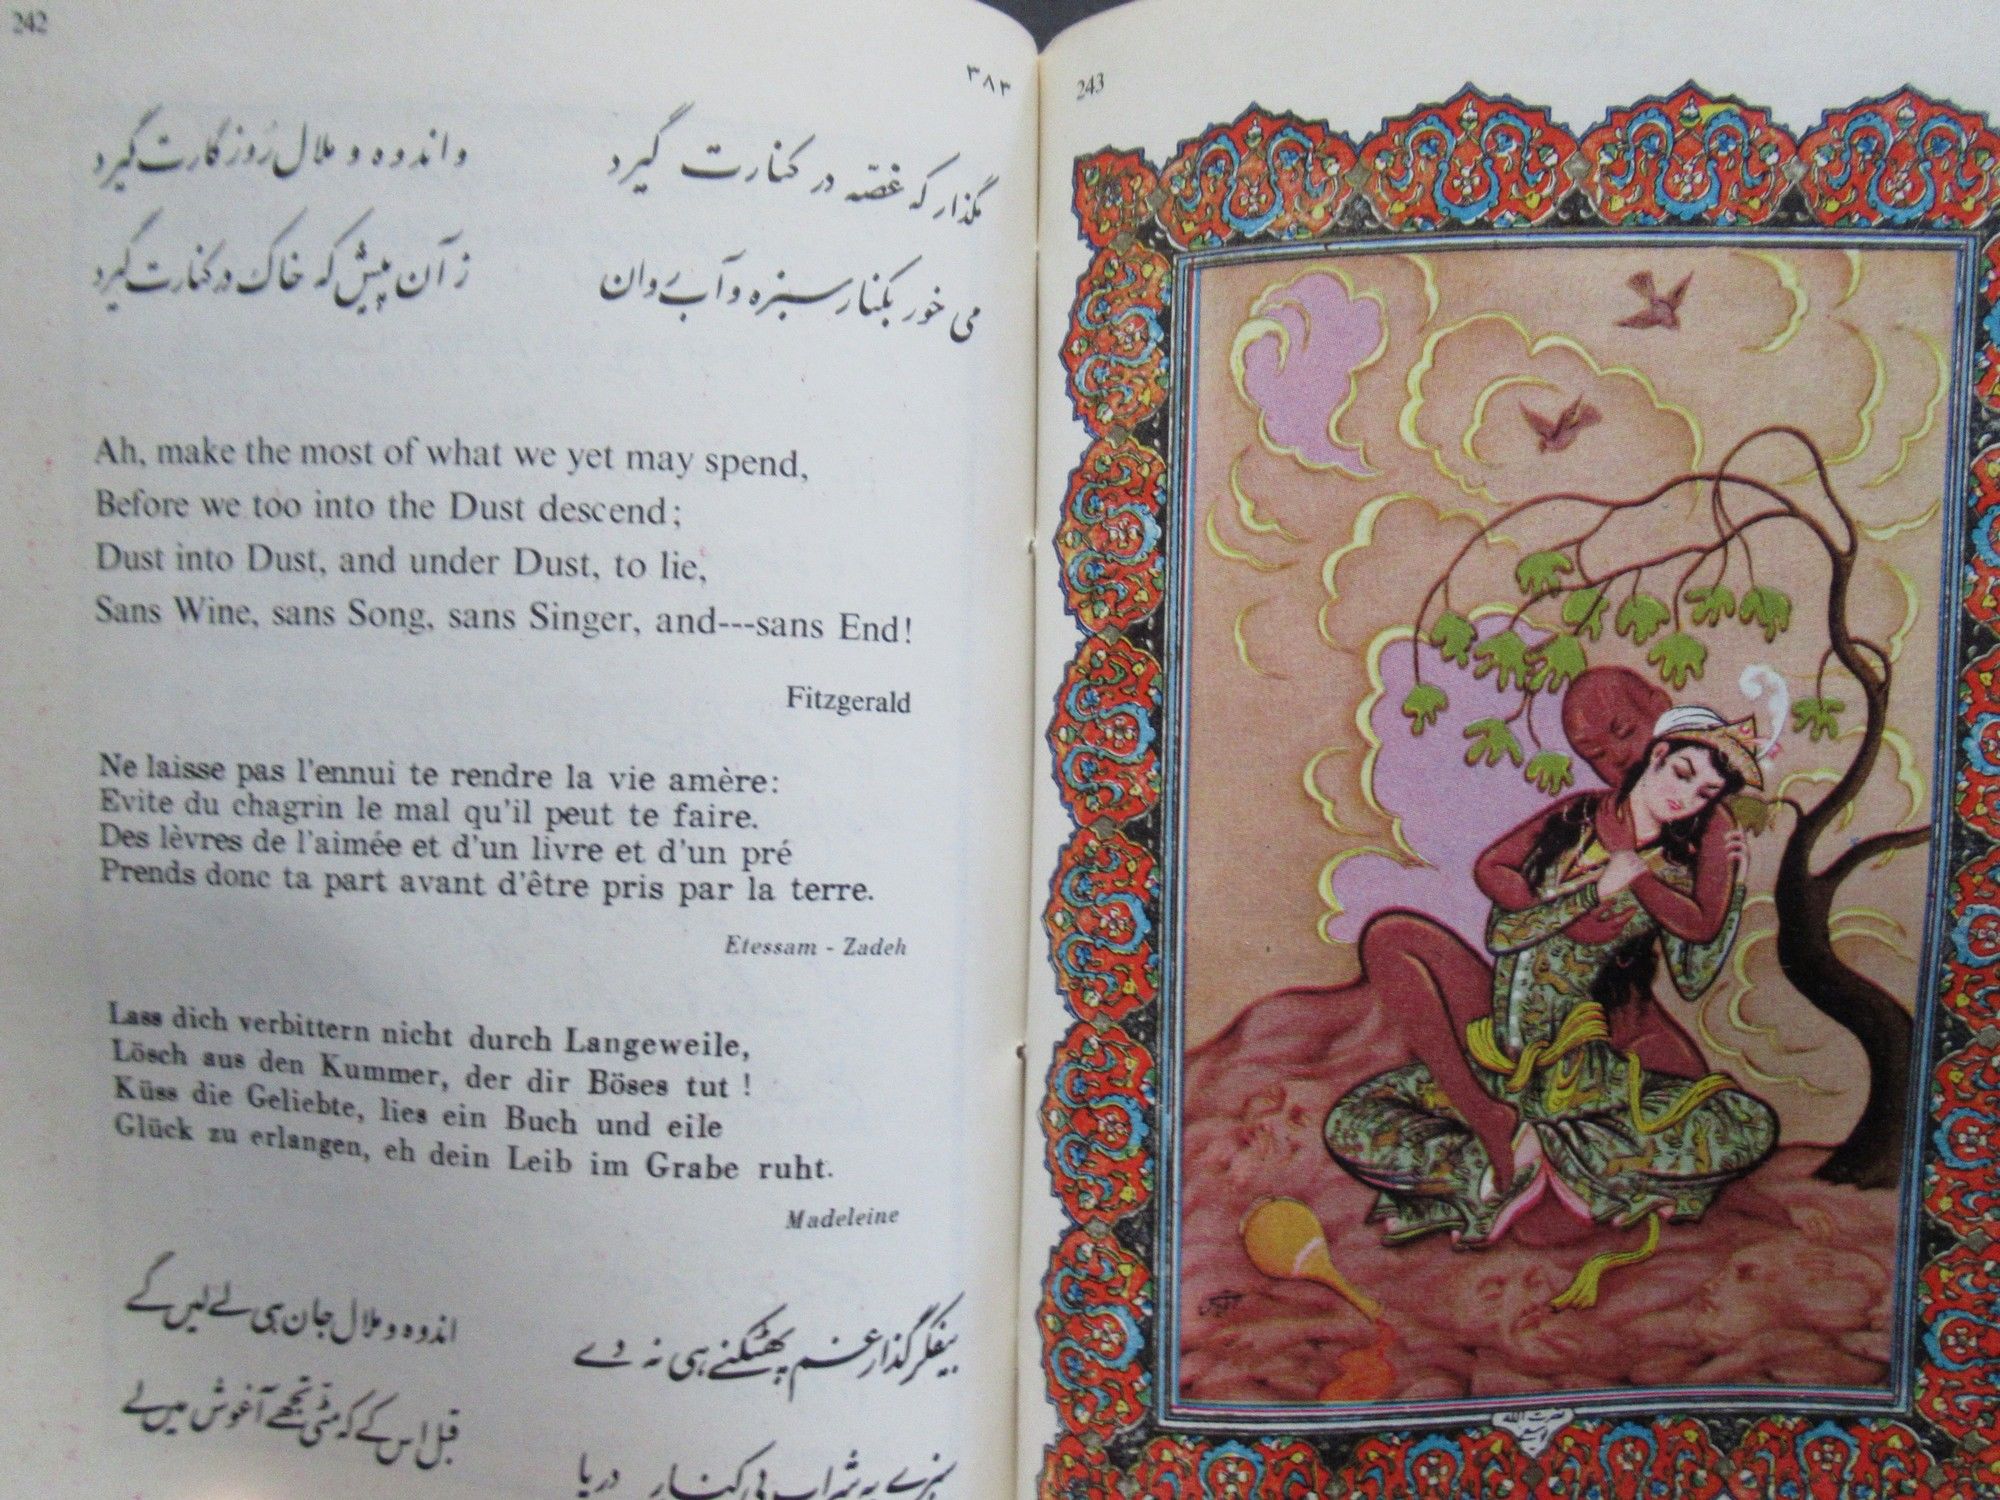 242
۳۸۳
مگذار که غصّه در کنارت گیرد
و اندوه و ملال رُوزگارت گیرد
می خور بکنار سبزه و آب روان
زآن پیش که خاک در کنارت گیرد
Ah, make the most of what we yet may spend,
Before we too into the Dust descend;
Dust into Dust, and under Dust, to lie,
Sans Wine, sans Song, sans Singer, and---sans End!
Fitzgerald
Ne laisse pas l'ennui te rendre la vie amère:
Evite du chagrin le mal qu'il peut te faire.
Des lèvres de l'aimée et d'un livre et d'un pré
Prends donc ta part avant d'être pris par la terre.
Etessam - Zadeh
Lass dich verbittern nicht durch Langeweile,
Lösch aus den Kummer, der dir Böses tut !
Küss die Geliebte, lies ein Buch und eile
Glück zu erlangen, eh dein Leib im Grabe ruht.
Madeleine
بیفکر گذار غم پھٹکنے ہی نہ دے
اندوہ و ملال جان ہی لے لیں گے
سبزے پہ شراب پی کنار دریا
قبل اس کے کہ مٹی تجھے آغوش میں لے
243